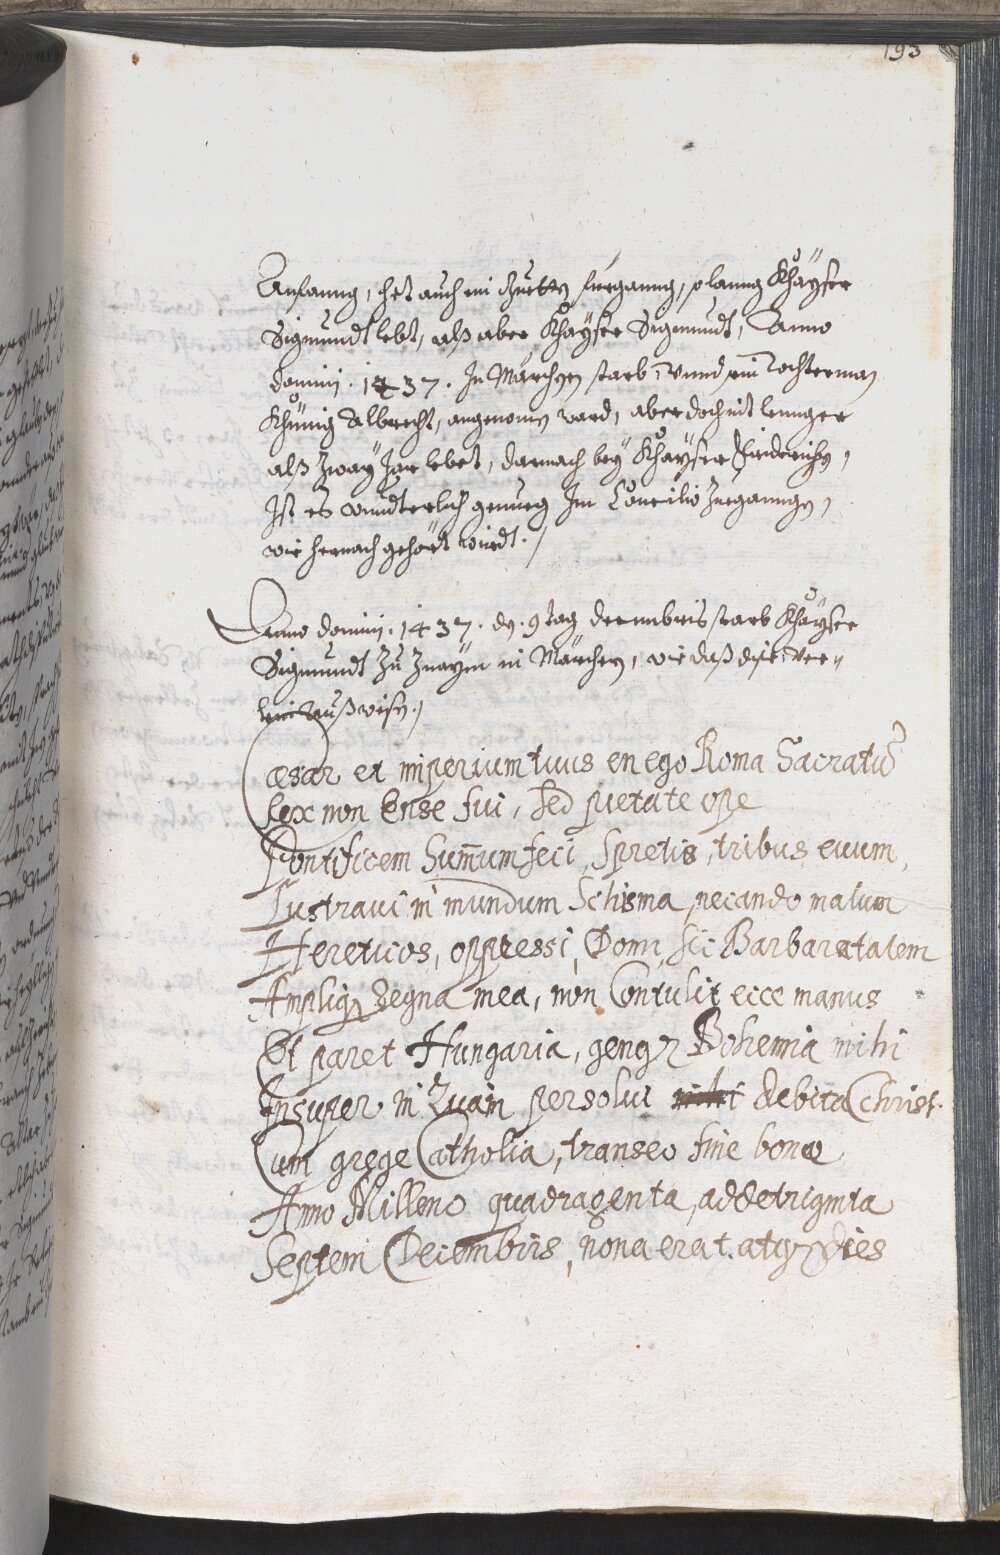 193
Anfanng, het auch in Zeitten fürganng, solanng Khaÿser
Sigmundt lebt, alß aber Khaÿser Sigmundt, Anno
dominj. 1437. In Märchen starb, vnnd sein Tochterman
Khünig Albrecht, angenomen ward, aber doch nit lennger
alß Zway Jar lebet, darnach beÿ Khaÿser Friderichen,
Ist es wundterlich genueg Im Concilio Zueganngen,
wie hernach gehördt wirdt./
Anno dominj. 1437. den. 9 tag decembris starb Khaÿser
Sigmundt Zu Znaym in Märchen, wie daß dise Ver„
außweisen./
Cæsar et imperium tuus en ego Roma Sacratus
Rex non Ense fui, sed pietate ope
Pontificem Summum feci, Spretis, tribus euum,
Lustraui in mundum Schisma, necando malum
Hereticos, oppressi, Domi, sic Barbaratatem
Ampliq3 Regna mea, non Contulit ecce manus
Et paret Hungaria, genq3 Bohemia mihi
Insuper in Znain persolui debita Christ.
Cum grege Catholia, transeo fine bono
Anno Milleno quadragenta, addetriginta
Septem Decembris, nona erat. atq3 Dies